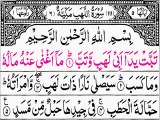 سُوْرَةُ اللَّهَبِ مَكِّيَّةٌ
بِسْمِ اللّٰهِ الرَّحْمٰنِ الرَّحِيْمِ
تَبَّتْ يَدَآ اَبِيْ لَهَبٍ وَّتَبَّ مَآ اَغْنٰى عَنْهُ مَالُهٗ
وَمَا كَسَبَ سَيَصْلٰى نَارًا ذَاتَ لَهَبٍ
حَمَّالَةَ الْحَطَبِ فِيْ جِيْدِهَا حَبْلٌ